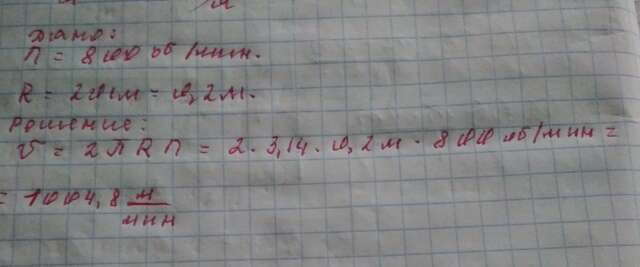 Дано:
n = 800 об/мин.
R = 20см = 0,2м.
Решение:
v = 2πRn = 2 · 3,14 · 0,2м · 800 об/мин =
= 1004,8 м/мин